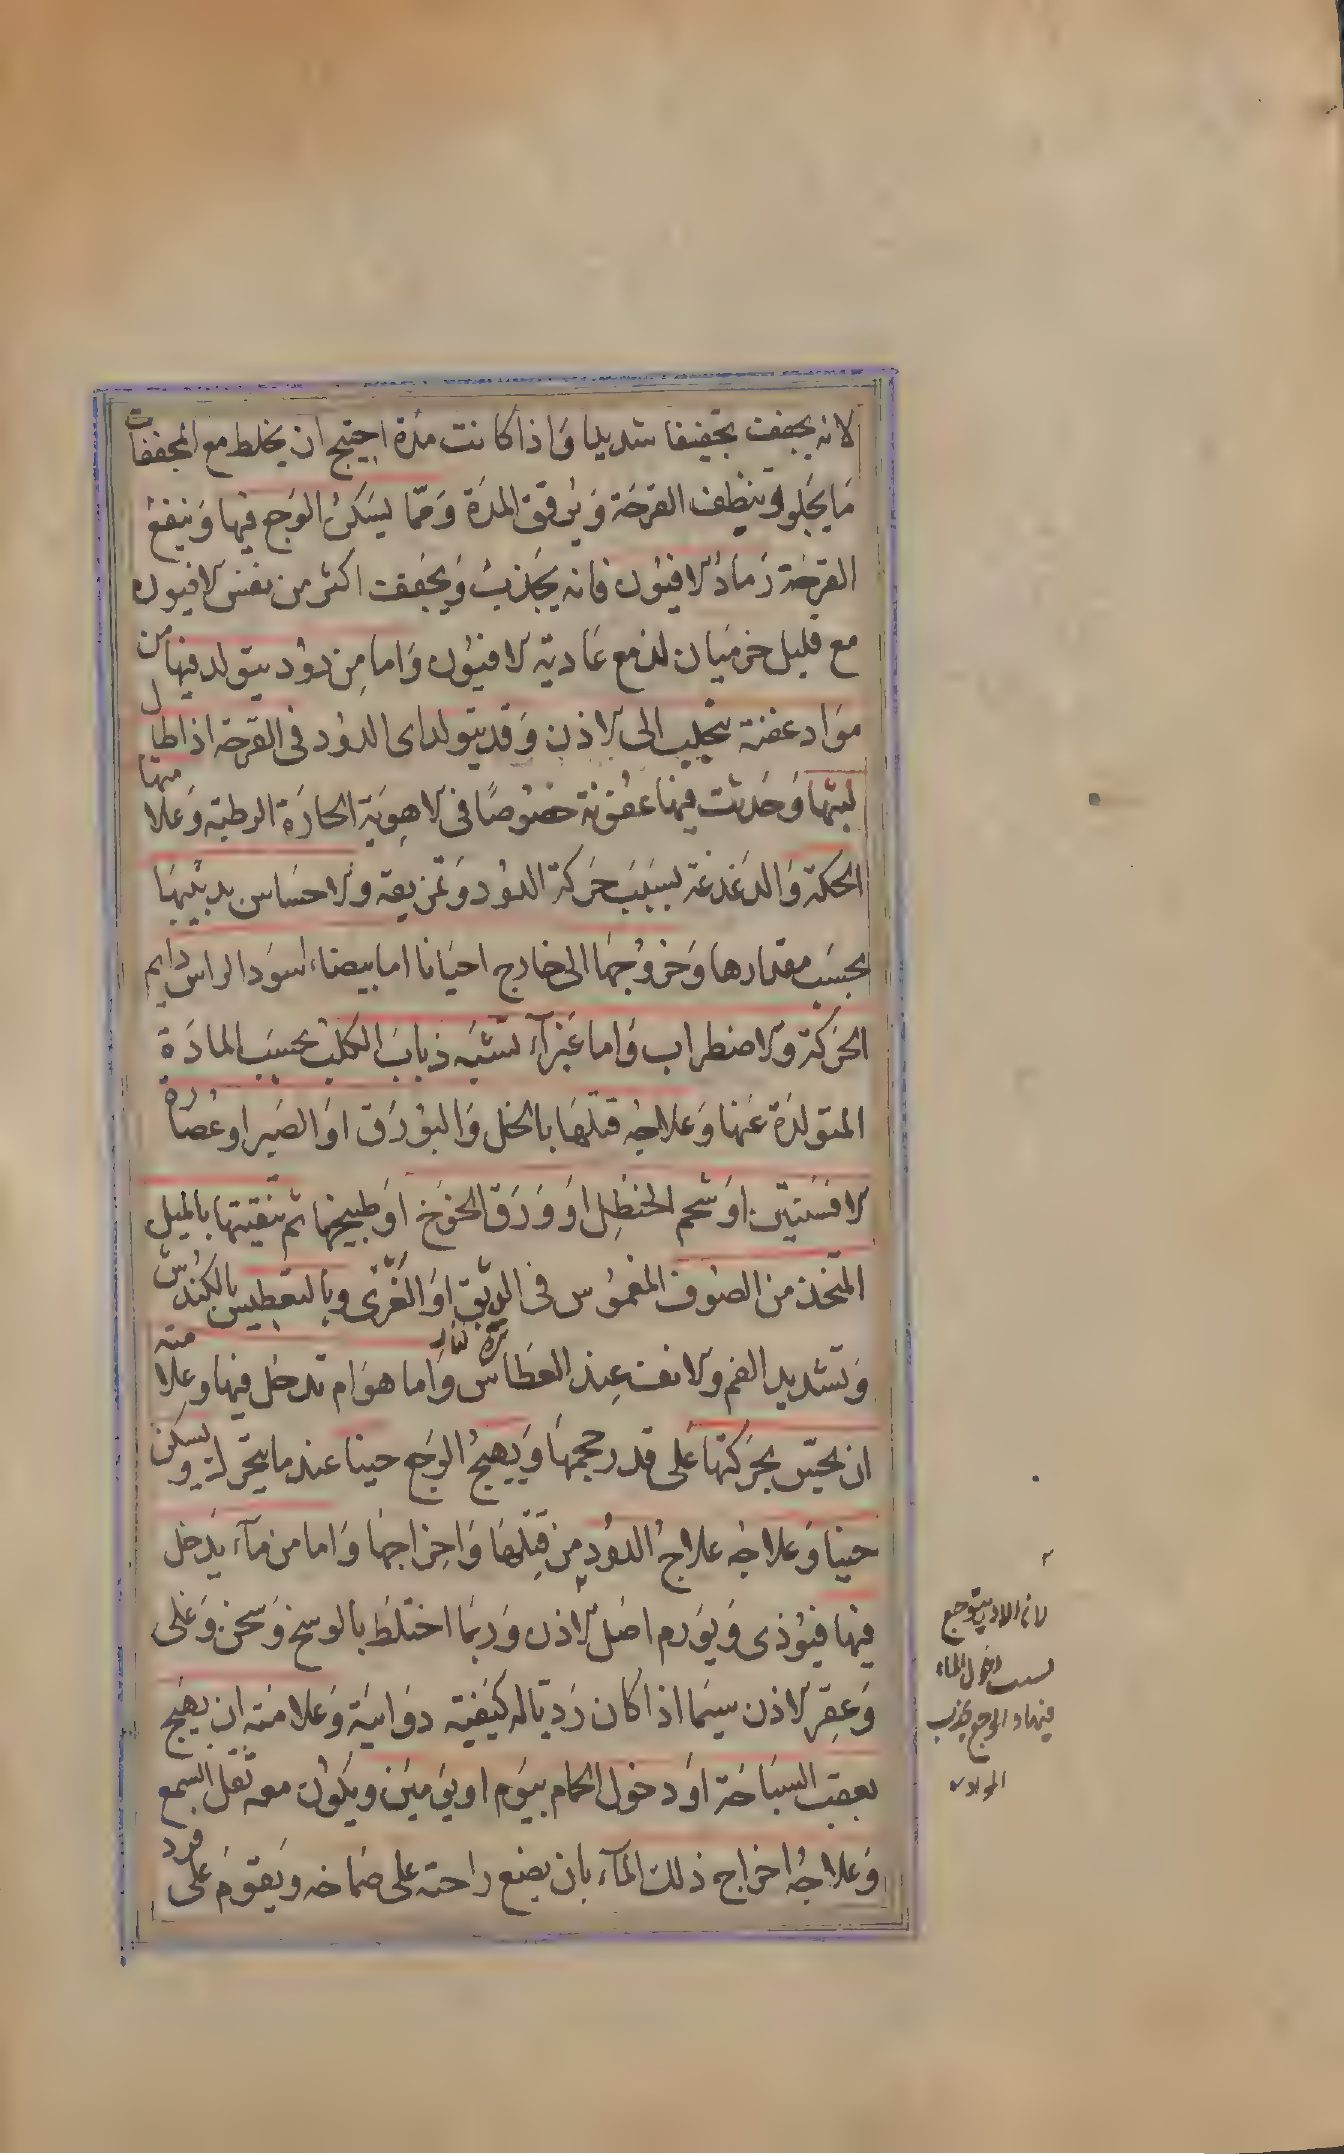 لانه يجفف تجفيفا شديدا وَاذا كانت مدة احتيج ان يخلط مع المجففات
مَا يجَلو وَينظف القرحَة وَيرقق المدَة وَممّا يسَكنُ الوَجع فيها وَينفعُ
القرحَة رَمادُ الافيُون فانه يجَذبُ وَيجَفف اكثر من نفس الافيون
مع قليل خرميَان لدفع عَاديّة الافيُون وَاما مِن دوُد يتولد فيها من
موَاد عفنة تتحلب الى الاذن وَقد يتولد اى الدوُد فى القرحة اذا طال
لبثها وَحَدثت فيها عفُونة خصُوصًا فى الاهوِيَة الحارَة الرطبة وَعلامتها
الحكة وَالدَغدَغة بسَبَب حَركة الدوُد وَتمزيقه وَالاحسَاس بدبيبهَا
بحسَب مقدارها وَخروُجهَا الى خارج احيَانا اما بيضاء اسوَد الراس دايم
الحرَكة وَالاضطراب وَاما غَبرآء تشبَه ذبابَ الكلب بحسَب المادَة
المتولدَة عَنها وَعلاجُه قتلهَا بالخل وَالبوُرَق اوَ الصَبر او عُصَارة
الافسَنتين اوَ شحم الحنظِل اوَ وَرَق الخَوَخ اوَ طبيخها ثم تنقيتها بالميل
المتخذ من الصوُف المغموُس فى الدِبق اوَ الغَرَى وبالتعطيس بالكندُس
وَتشديد الفم وَالانف عِند العطَاس وَاما هوَام تدخل فيها وعلامته
ان يحسّ بحرَكتها عَلى قدر حجمهَا وَيهيج الوَجع حينا عند ما يتحرك ويسكن
حينا وَعلاجُه علاجُ الدوُد مِن قتلهَا وَاخراجهَا وَاما من مَآء يَدخل
فيها فيُوذى وَيوَرم اصَل الاذن وَربَما اختلَط بالوسخ وَسخن وَغلى
وَعقِر الاذن سيمَا اذا كان رَديّا له كيَفيّة دوَائيَة وَعلامَته ان يهَيج
بعقب السبَاحَة اوَ دخول الحمام بيَوم او يوَمين وَيكوُن معه ثقل السمع
وَعلاجُه اخرَاج ذلك المآء بان يضع راحته على صمَاخه وَيقوَم عَلى فرد
لان الاذن يتوجع
بسبب دخول الماء
فيها والوجع يجذب
المواد